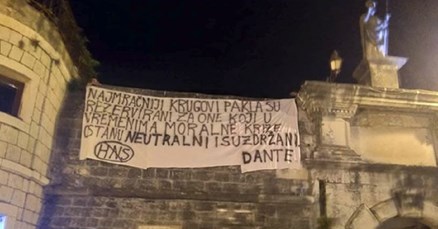 NAJMRAČNIJI KRUGOVI PAKLA SU
REZERVIRANI ZA ONE KOJI U
VREMENIMA MORALNE KRIZE
OSTANU NEUTRALNI I SUZDRŽANI
HNS DANTE